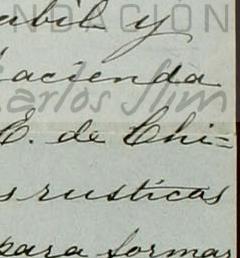 NDACIÓN
abil y
acienda
Carlos Slim
E. de Chi=
s rusticas
para formar